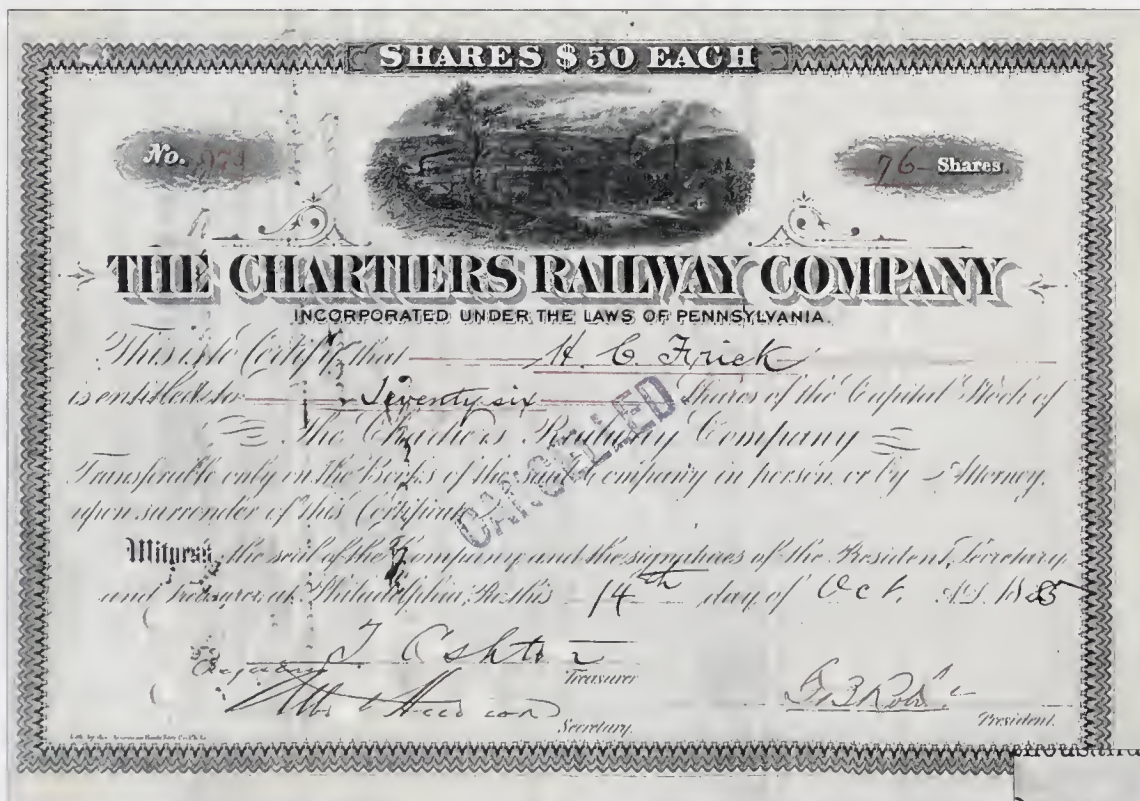 SHARES $50 EACH
No.
76 Shares.
THE CHARTIERS RAILWAY COMPANY
INCORPORATED UNDER THE LAWS OF PENNSYLVANIA.
This is to Certify that H. C. Frick
is entitled to Seventy six Shares of the Capital Stock of
The Chartiers Railway Company
Transferable only on the Books of the said Company in person or by Attorney,
upon surrender of this Certificate
CANCELLED
Witness, the seal of the Company and the signatures of the President, Secretary
and Treasurer, at Philadelphia, Pa. this 14th day of Oct. A.D. 1885
T Ashton
Treasurer
Secretary.
President.